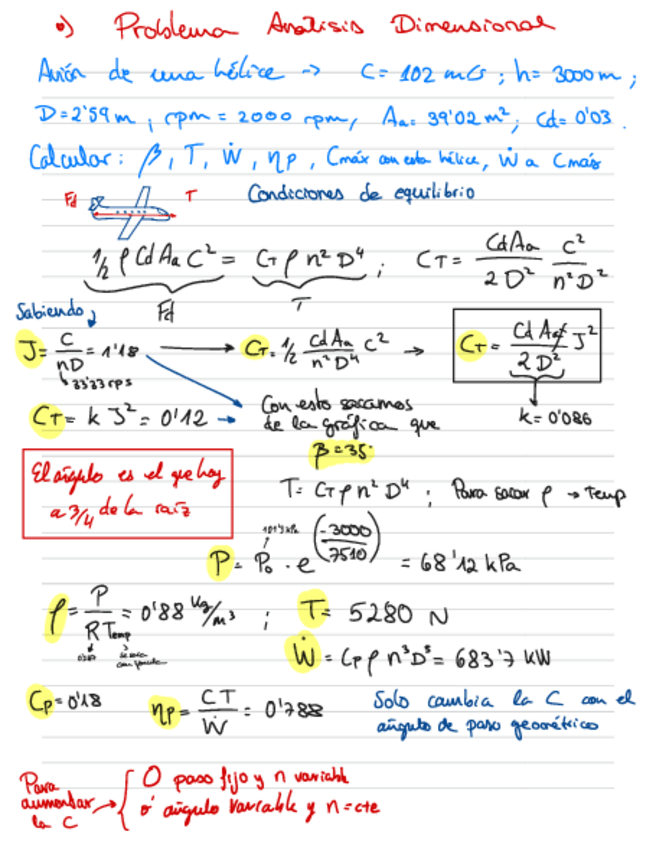 o) Problema Análisis Dimensional
Avión de una hélice -> C = 102 m/s ; h = 3000 m ;
D = 2'59 m , rpm = 2000 rpm, Aa = 39'02 m² ; Cd = 0'03 .
Calcular : β , T , Ẇ , ηp , Cmáx con esta hélice, Ẇ a Cmáx
Condiciones de equilibrio
Fd T
1/2 ρ Cd Aa C² = CT ρ n² D⁴ ; CT = Cd Aa / 2 D² C² / n² D²
Fd T
Sabiendo
J = C / nD = 1'18 → CT = 1/2 Cd Aa / n² D⁴ C² → CT = Cd Aa / 2 D² J²
33'33 rps
k = 0'086
CT = k J² = 0'12 → Con esto sacamos
de la gráfica que
β = 35º
El ángulo es el que hay
a 3/4 de la raíz
T = CT ρ n² D⁴ ; Para sacar ρ → Temp
101'3 kPa
P = P₀ · e^(-3000 / 7510) = 68'12 kPa
ρ = P / R Temp = 0'88 kg/m³ ; T = 5280 N
0'287 se saca con formula
Ẇ = Cp ρ n³ D⁵ = 683'7 kW
Cp = 0'18 ηp = CT / Ẇ = 0'788
Solo cambia la C con el
ángulo de paso geométrico
Para
aumentar
la C → { O paso fijo y n variable
ó ángulo variable y n = cte